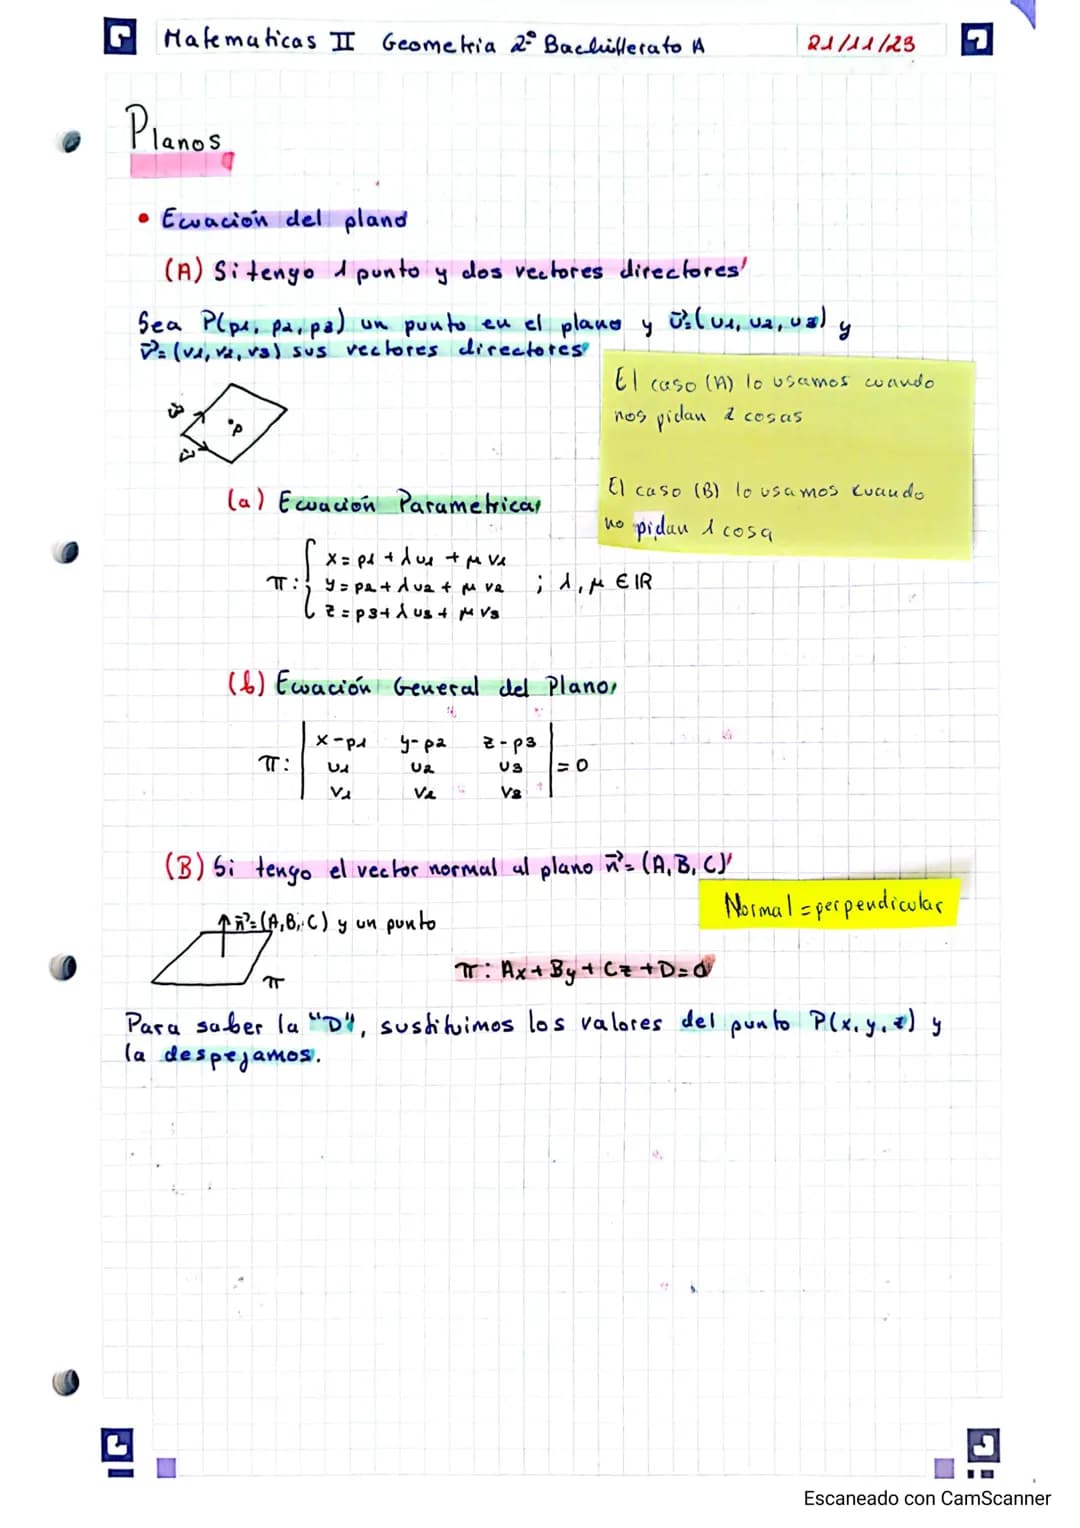 Matematicas II Geometria 2º Bachillerato A 21/11/23
Planos
• Ecuación del plano
(A) Si tengo 1 punto y dos vectores directores
Sea P(p1, p2, p3) un punto en el plano y u⃗=(u1, u2, u3) y
v⃗=(v1, v2, v3) sus vectores directores
El caso (A) lo usamos cuando
nos pidan 2 cosas
El caso (B) lo usamos cuando
no pidan 1 cosa
u⃗
v⃗
•P
(a) Ecuación Parametrica
x = p1 + λu1 + μ v1
π: y = p2 + λu2 + μ v2 ; λ, μ ∈ IR
z = p3 + λu3 + μ v3
(b) Ecuación General del Plano
x-p1 y-p2 z-p3
π: u1 u2 u3 = 0
v1 v2 v3
(B) Si tengo el vector normal al plano n⃗=(A, B, C)
Normal = perpendicular
n⃗=(A, B, C) y un punto
π
π: Ax + By + Cz + D = 0
Para saber la "D", sustituimos los valores del punto P(x, y, z) y
la despejamos.
Escaneado con CamScanner